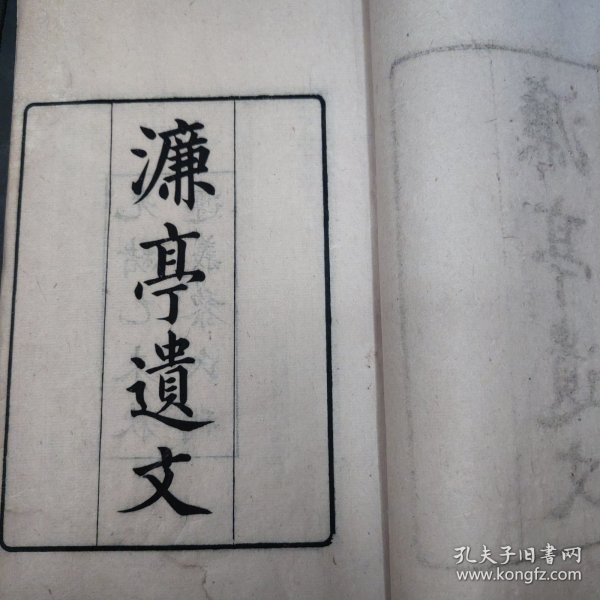 濂亭遺文
孔夫子旧书网
www.kongfz.com